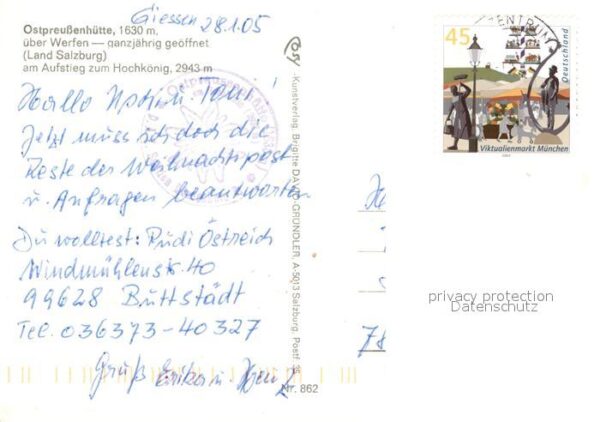 Giessen 28.1.05
Ostpreußenhütte, 1630 m.
über Werfen — ganzjährig geöffnet
(Land Salzburg)
am Aufstieg zum Hochkönig, 2943 m
Hallo Toni!
Jetzt muss ich doch die
Reste der Weihnachtspost
u. Anfragen beantworten
Du wolltest: Rudi Östreich
Windmühlenstr. 40
99628 Buttstädt
Tel. 036373-40327
Gruß Erika u.
Kunstverlag Brigitte DAVID-GRÜNDLER, A-5013 Salzburg, Postf.
Nr. 862
ZENTRUM
45
Deutschland
Viktualienmarkt München
privacy protection
Datenschutz